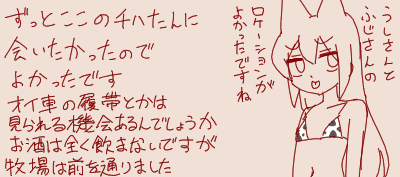 ずっとここのチハたんに
会いたかったので
よかったです
オイ車の履帯とかは
見られる機会あるんでしょうか
お酒は全く飲まないですが
牧場は前を通りました
うしさんと
ふじさんの
ロケーションが
よかったですね